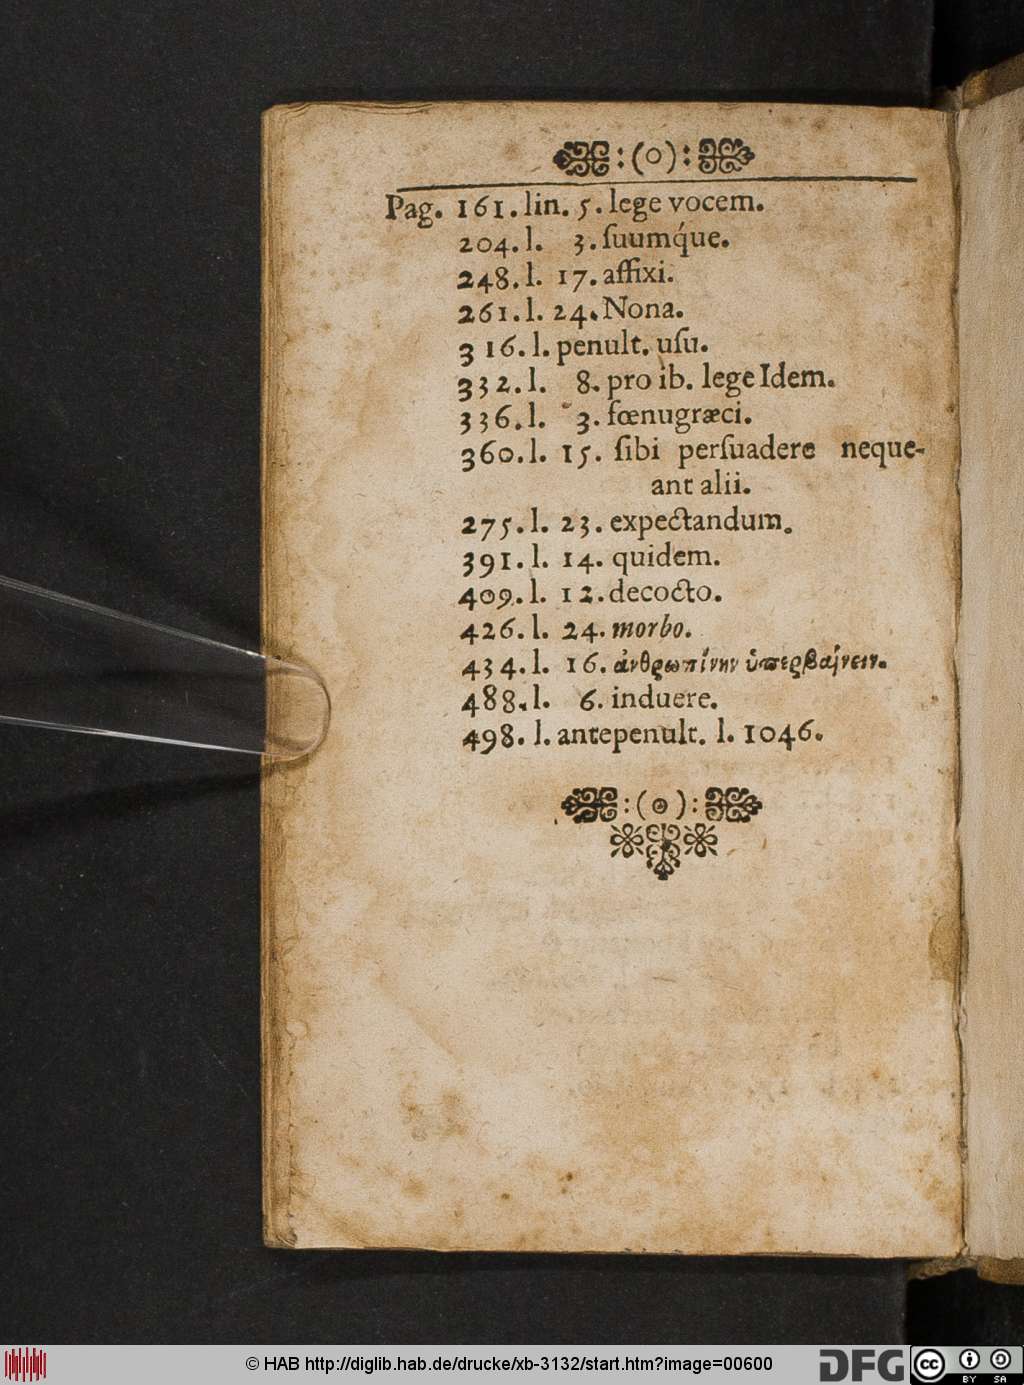 :(o):
Pag. 161. lin. 5. lege vocem.
204. l. 3. ſuumq́ue.
248. l. 17. affixi.
261. l. 24. Nona.
316. l. penult. uſu.
332. l. 8. pro ib. lege Idem.
336. l. 3. fœnugræci.
360. l. 15. ſibi perſuadere neque-
ant alii.
275. l. 23. expectandum.
391. l. 14. quidem.
409. l. 12. decocto.
426. l. 24. morbo.
434. l. 16. ἀνθρωπίνην ὑπερβαίνειν.
488. l. 6. induere.
498. l. antepenult. l. 1046.
:(o):
© HAB http://diglib.hab.de/drucke/xb-3132/start.htm?image=00600
DFG
cc BY SA